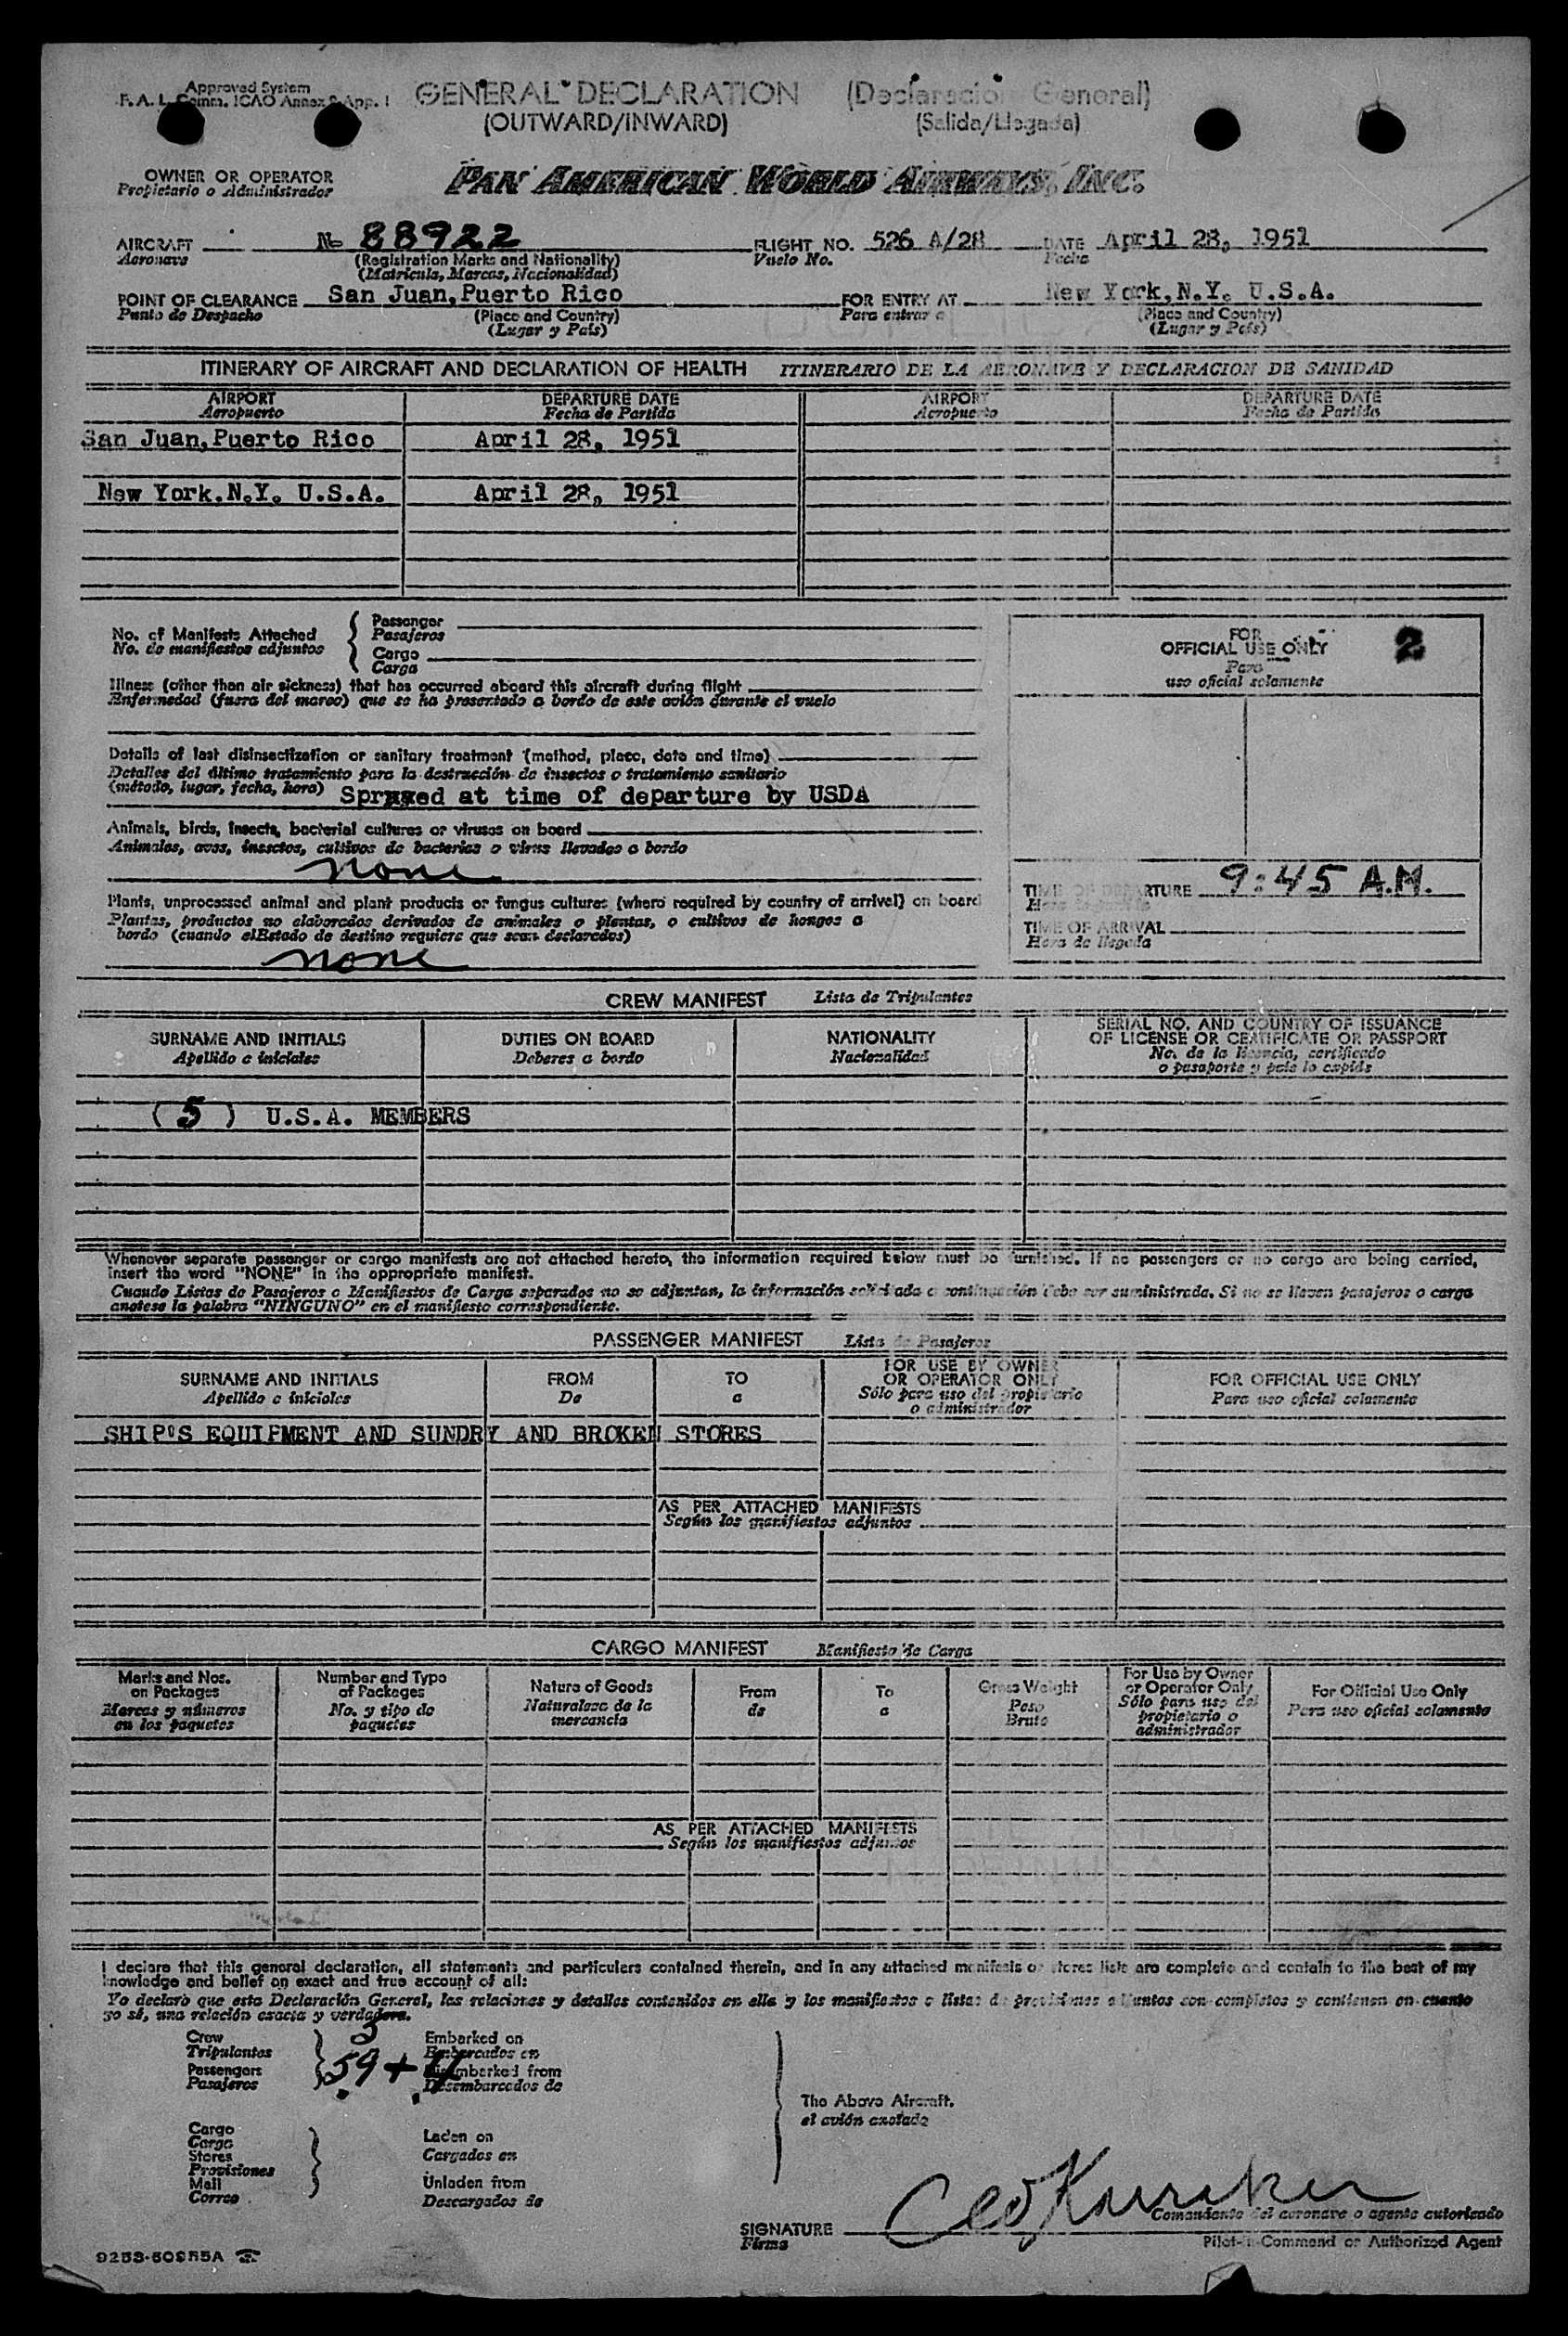 Approved System
F. A. L. Comm. ICAO Annex 9 App. 1
GENERAL DECLARATION (Declaración General)
(OUTWARD/INWARD) (Salida/Llegada)
OWNER OR OPERATOR
Propietario o Administrador
PAN AMERICAN WORLD AIRWAYS, INC.
AIRCRAFT N- 88922 FLIGHT NO. 526 A/28 DATE April 28, 1951
Aeronave (Registration Marks and Nationality) Vuelo No. Fecha
(Matrícula, Marcas, Nacionalidad)
POINT OF CLEARANCE San Juan, Puerto Rico FOR ENTRY AT New York, N.Y. U.S.A.
Punto de Despacho (Place and Country) Para entrar a (Place and Country)
(Lugar y País) (Lugar y País)
ITINERARY OF AIRCRAFT AND DECLARATION OF HEALTH ITINERARIO DE LA AERONAVE Y DECLARACION DE SANIDAD
AIRPORT DEPARTURE DATE AIRPORT DEPARTURE DATE
Aeropuerto Fecha de Partida Aeropuerto Fecha de Partida
San Juan, Puerto Rico April 28, 1951
New York. N.Y. U.S.A. April 28, 1951
No. of Manifests Attached
No. de manifiestos adjuntos
Passenger
Pasajeros
Cargo
Carga
FOR
OFFICIAL USE ONLY 2
Para
uso oficial solamente
Illness (other than air sickness) that has occurred aboard this aircraft during flight
Enfermedad (fuera del mareo) que se ha presentado a bordo de este avión durante el vuelo
Details of last disinsectization or sanitary treatment (method, place, date and time)
Detalles del último tratamiento para la destrucción de insectos o tratamiento sanitario
(método, lugar, fecha, hora) Sprxxed at time of departure by USDA
Animals, birds, insects, bacterial cultures or viruses on board
Animales, aves, insectos, cultivos de bacterias o virus llevados a bordo
none
Plants, unprocessed animal and plant products or fungus cultures (where required by country of arrival) on board
Plantas, productos no elaborados derivados de animales o plantas, o cultivos de hongos a
bordo (cuando elEstado de destino requiera que sean declarados)
none
TIME OF DEPARTURE 9:45 A.M.
TIME OF ARRIVAL
Hora de llegada
CREW MANIFEST Lista de Tripulantes
SURNAME AND INITIALS DUTIES ON BOARD NATIONALITY SERIAL NO. AND COUNTRY OF ISSUANCE
OF LICENSE OR CERTIFICATE OR PASSPORT
Apellido e iniciales Deberes a bordo Nacionalidad No. de la licencia, certificado
o pasaporte y país lo expide
( 5 ) U.S.A. MEMBERS
Whenever separate passenger or cargo manifests are not attached hereto, the information required below must be furnished. If no passengers or no cargo are being carried,
insert the word "NONE" in the appropriate manifest.
Cuando Listas de Pasajeros o Manifiestos de Carga separados no se adjuntan, la información solicitada a continuación debe ser suministrada. Si no se llevan pasajeros o carga
anotese la palabra "NINGUNO" en el manifiesto correspondiente.
PASSENGER MANIFEST Lista de Pasajeros
SURNAME AND INITIALS FROM TO FOR USE BY OWNER
OR OPERATOR ONLY FOR OFFICIAL USE ONLY
Apellido e iniciales De a Sólo para uso del propietario
o administrador Para uso oficial solamente
SHIP'S EQUIPMENT AND SUNDRY AND BROKEN STORES
AS PER ATTACHED MANIFESTS
Según los manifiestos adjuntos
CARGO MANIFEST Manifiesto de Carga
Marks and Nos.
on Packages
Marcas y números
en los paquetes
Number and Type
of Packages
No. y tipo de
paquetes
Nature of Goods
Naturaleza de la
mercancía
From
de
To
a
Gross Weight
Peso
Bruto
For Use by Owner
or Operator Only
Sólo para uso del
propietario o
administrador
For Official Use Only
Para uso oficial solamente
AS PER ATTACHED MANIFESTS
Según los manifiestos adjuntos
I declare that this general declaration, all statements and particulars contained therein, and in any attached manifests or stores lists are complete and contain to the best of my
knowledge and belief an exact and true account of all:
Yo declaro que esta Declaración General, las relaciones y detalles contenidos en ella y los manifiestos o listas de provisiones adjuntos son completos y contienen en cuanto
yo sé, una relación exacta y verdadera.
Crew 5 Embarked on
Tripulantes Embarcados en
Passengers 59 + 4 Disembarked from
Pasajeros Desembarcados de
The Above Aircraft.
el avión anotado
Cargo
Carga
Stores
Provisiones
Mail
Correo
Laden on
Cargados en
Unladen from
Descargados de
SIGNATURE
Firma
Comandante del aeronave o agente autorizado
Pilot-in-Command or Authorized Agent
9253-50955A